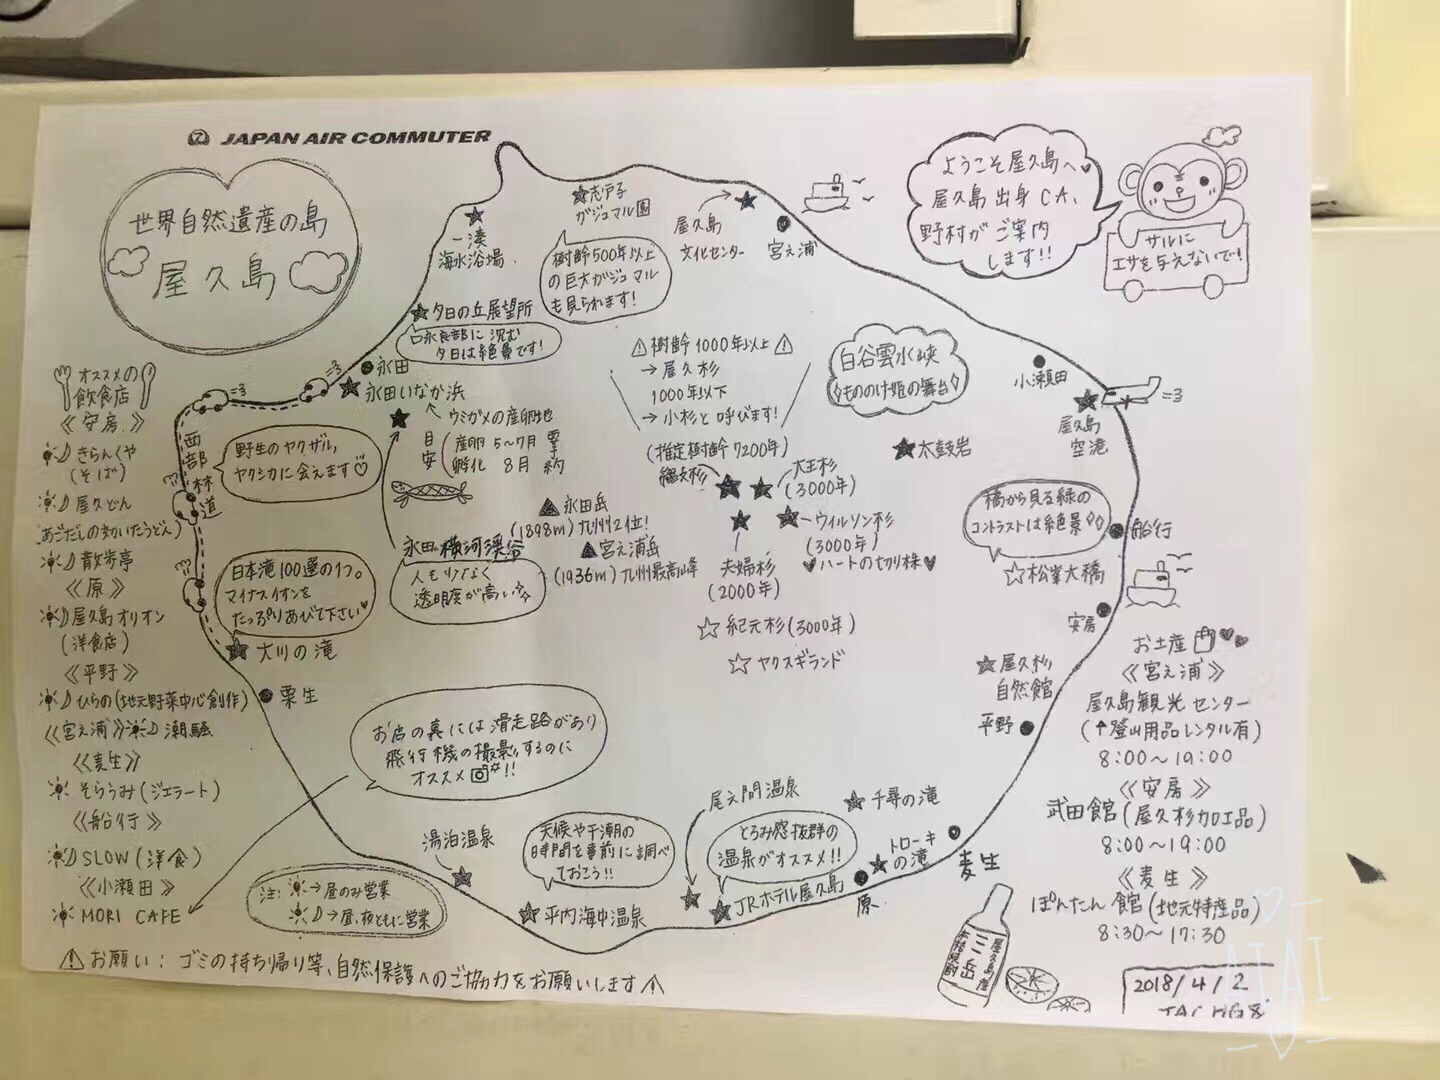 JAPAN AIR COMMUTER
世界自然遺産の島
屋久島
ようこそ屋久島へ♥
屋久島出身CA、
野村がご案内
します!!
サルに
エサを与えないで!
一湊
海水浴場
志戸子
ガジュマル園
樹齢500年以上
の巨大ガジュマル
も見られます!
屋久島
文化センター
宮之浦
夕日の丘展望所
口永良部に沈む
夕日は絶景です!
永田
永田いなか浜
ウミガメの産卵地
目安
産卵 5~7月
孵化 8月
要予約
西部林道
野生のヤクザル、
ヤクシカに会えます♡
永田岳
(1898m)九州2位!
宮之浦岳
(1936m)九州最高峰
永田 横河渓谷
人も少なく
透明度が高い
⚠樹齢1000年以上⚠
→屋久杉
1000年以下
→小杉と呼びます!
(推定樹齢7200年)
縄文杉
大王杉
(3000年)
ウィルソン杉
(3000年)
♥ハートの切り株♥
夫婦杉
(2000年)
☆紀元杉(3000年)
☆ヤクスギランド
白谷雲水峡
もののけ姫の舞台
太鼓岩
小瀬田
屋久島
空港
橋から見る緑の
コントラストは絶景
☆松峯大橋
船行
安房
屋久杉
自然館
平野
日本滝100選の1つ。
マイナスイオンを
たっぷりあびて下さい♥
大川の滝
栗生
お店の裏には滑走路があり
飛行機の撮影するのに
オススメ!!
湯泊温泉
天候や干潮の
時間を事前に調べ
ておこう!!
平内海中温泉
尾之間温泉
とろみ感抜群の
温泉がオススメ!!
JRホテル屋久島
千尋の滝
トローキ
の滝
原
麦生
オススメの
飲食店
《安房》
きらんくや
(そば)
屋久どん
(あごだしの効いたうどん)
散歩亭
《原》
屋久島オリオン
(洋食店)
《平野》
ひらの(地元野菜中心創作)
《宮之浦》潮騒
《麦生》
そらうみ(ジェラート)
《船行》
SLOW(洋食)
《小瀬田》
MORI CAFE
注:
→昼のみ営業
→昼、夜ともに営業
お土産
《宮之浦》
屋久島観光センター
(↑登山用品レンタル有)
8:00~19:00
《安房》
武田館(屋久杉加工品)
8:00~19:00
《麦生》
ぽんたん館(地元特産品)
8:30~17:30
屋久島産
三岳
本格焼酎
⚠お願い:ゴミの持ち帰り等、自然保護へのご協力をお願いします⚠
2018/4/2
AIAI